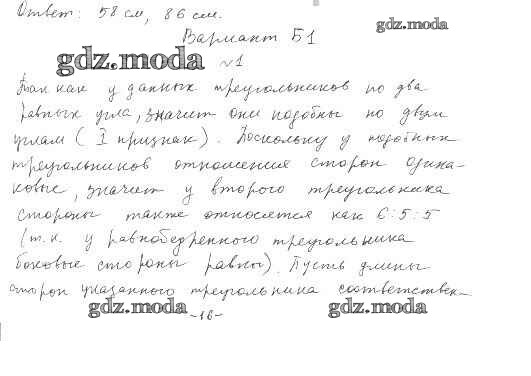 Ответ: 58 см, 86 см.
gdz.moda
Вариант Б1
gdz.moda
№1
Так как у данных треугольников по два
равных угла, значит они подобны по двум
углам ( I признак). Поскольку у подобных
треугольников отношения сторон одина-
ковые, значит у второго треугольника
стороны также относятся как 6:5:5
(т.к. у равнобедренного треугольника
боковые стороны равны). Пусть длины
сторон указанного треугольника соответствен-
gdz.moda
-16-
gdz.moda